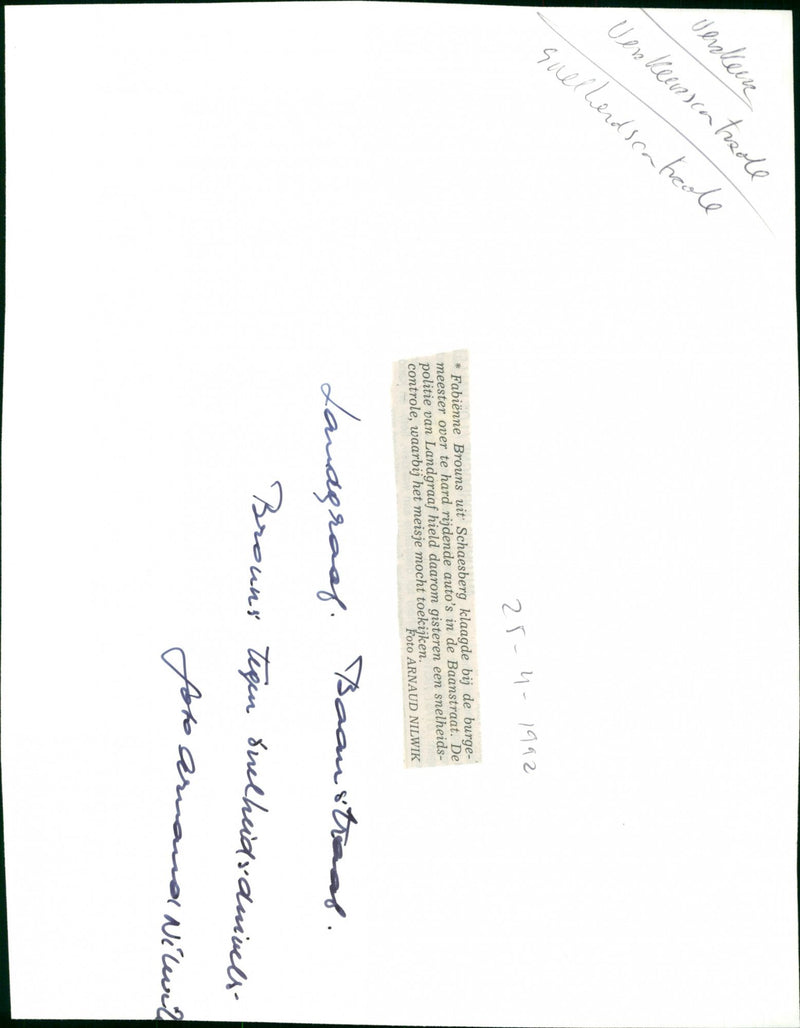 Verkeer
Verkeerscontrole
snelheidscontrole
25-4-1992
* Fabiënne Brouns uit Schaesberg klaagde bij de burge-
meester over te hard rijdende auto's in de Baanstraat. De
politie van Landgraaf hield daarom gisteren een snelheids-
controle, waarbij het meisje mocht toekijken.
Foto ARNAUD NILWIK
Landgraaf. Baanstraat.
Brouns tegen snelheidsduivels.
foto Arnaud Nilwik